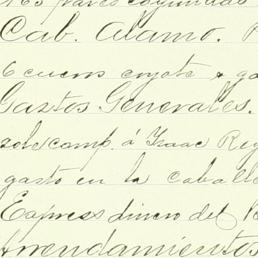 165 pares
Cab. Alamo.
6 cueros coyote &
Gastos Generales.
comp. á Isaac Rey
gasto en la caballe
Express dinero del B
Arrendamientos